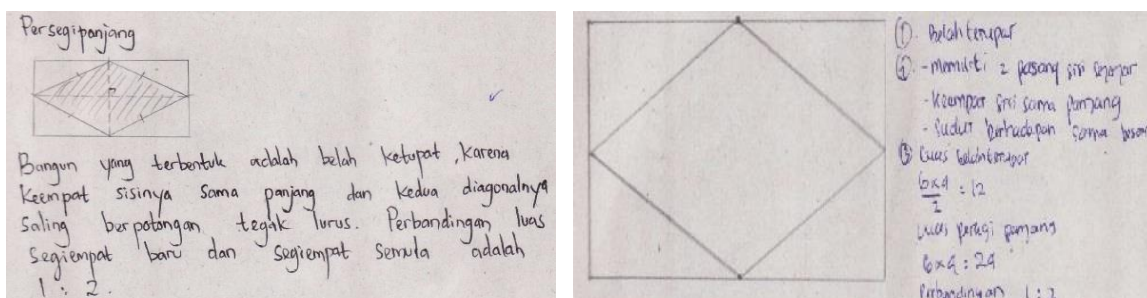 Persegipanjang
Bangun yang terbentuk adalah belah ketupat, karena
Keempat sisinya sama panjang dan kedua diagonalnya
Saling berpotongan tegak lurus. Perbandingan luas
Segiempat baru dan segiempat semula adalah
1 : 2.
① Belah ketupat
② - memiliki 2 pasang sisi sejajar
- Keempat sisi sama panjang
- Sudut berhadapan sama besar
③ Luas belahketupat
6x4 : 12
2
Luas persegi panjang
6x4 : 24
Perbandingan 1 : 2